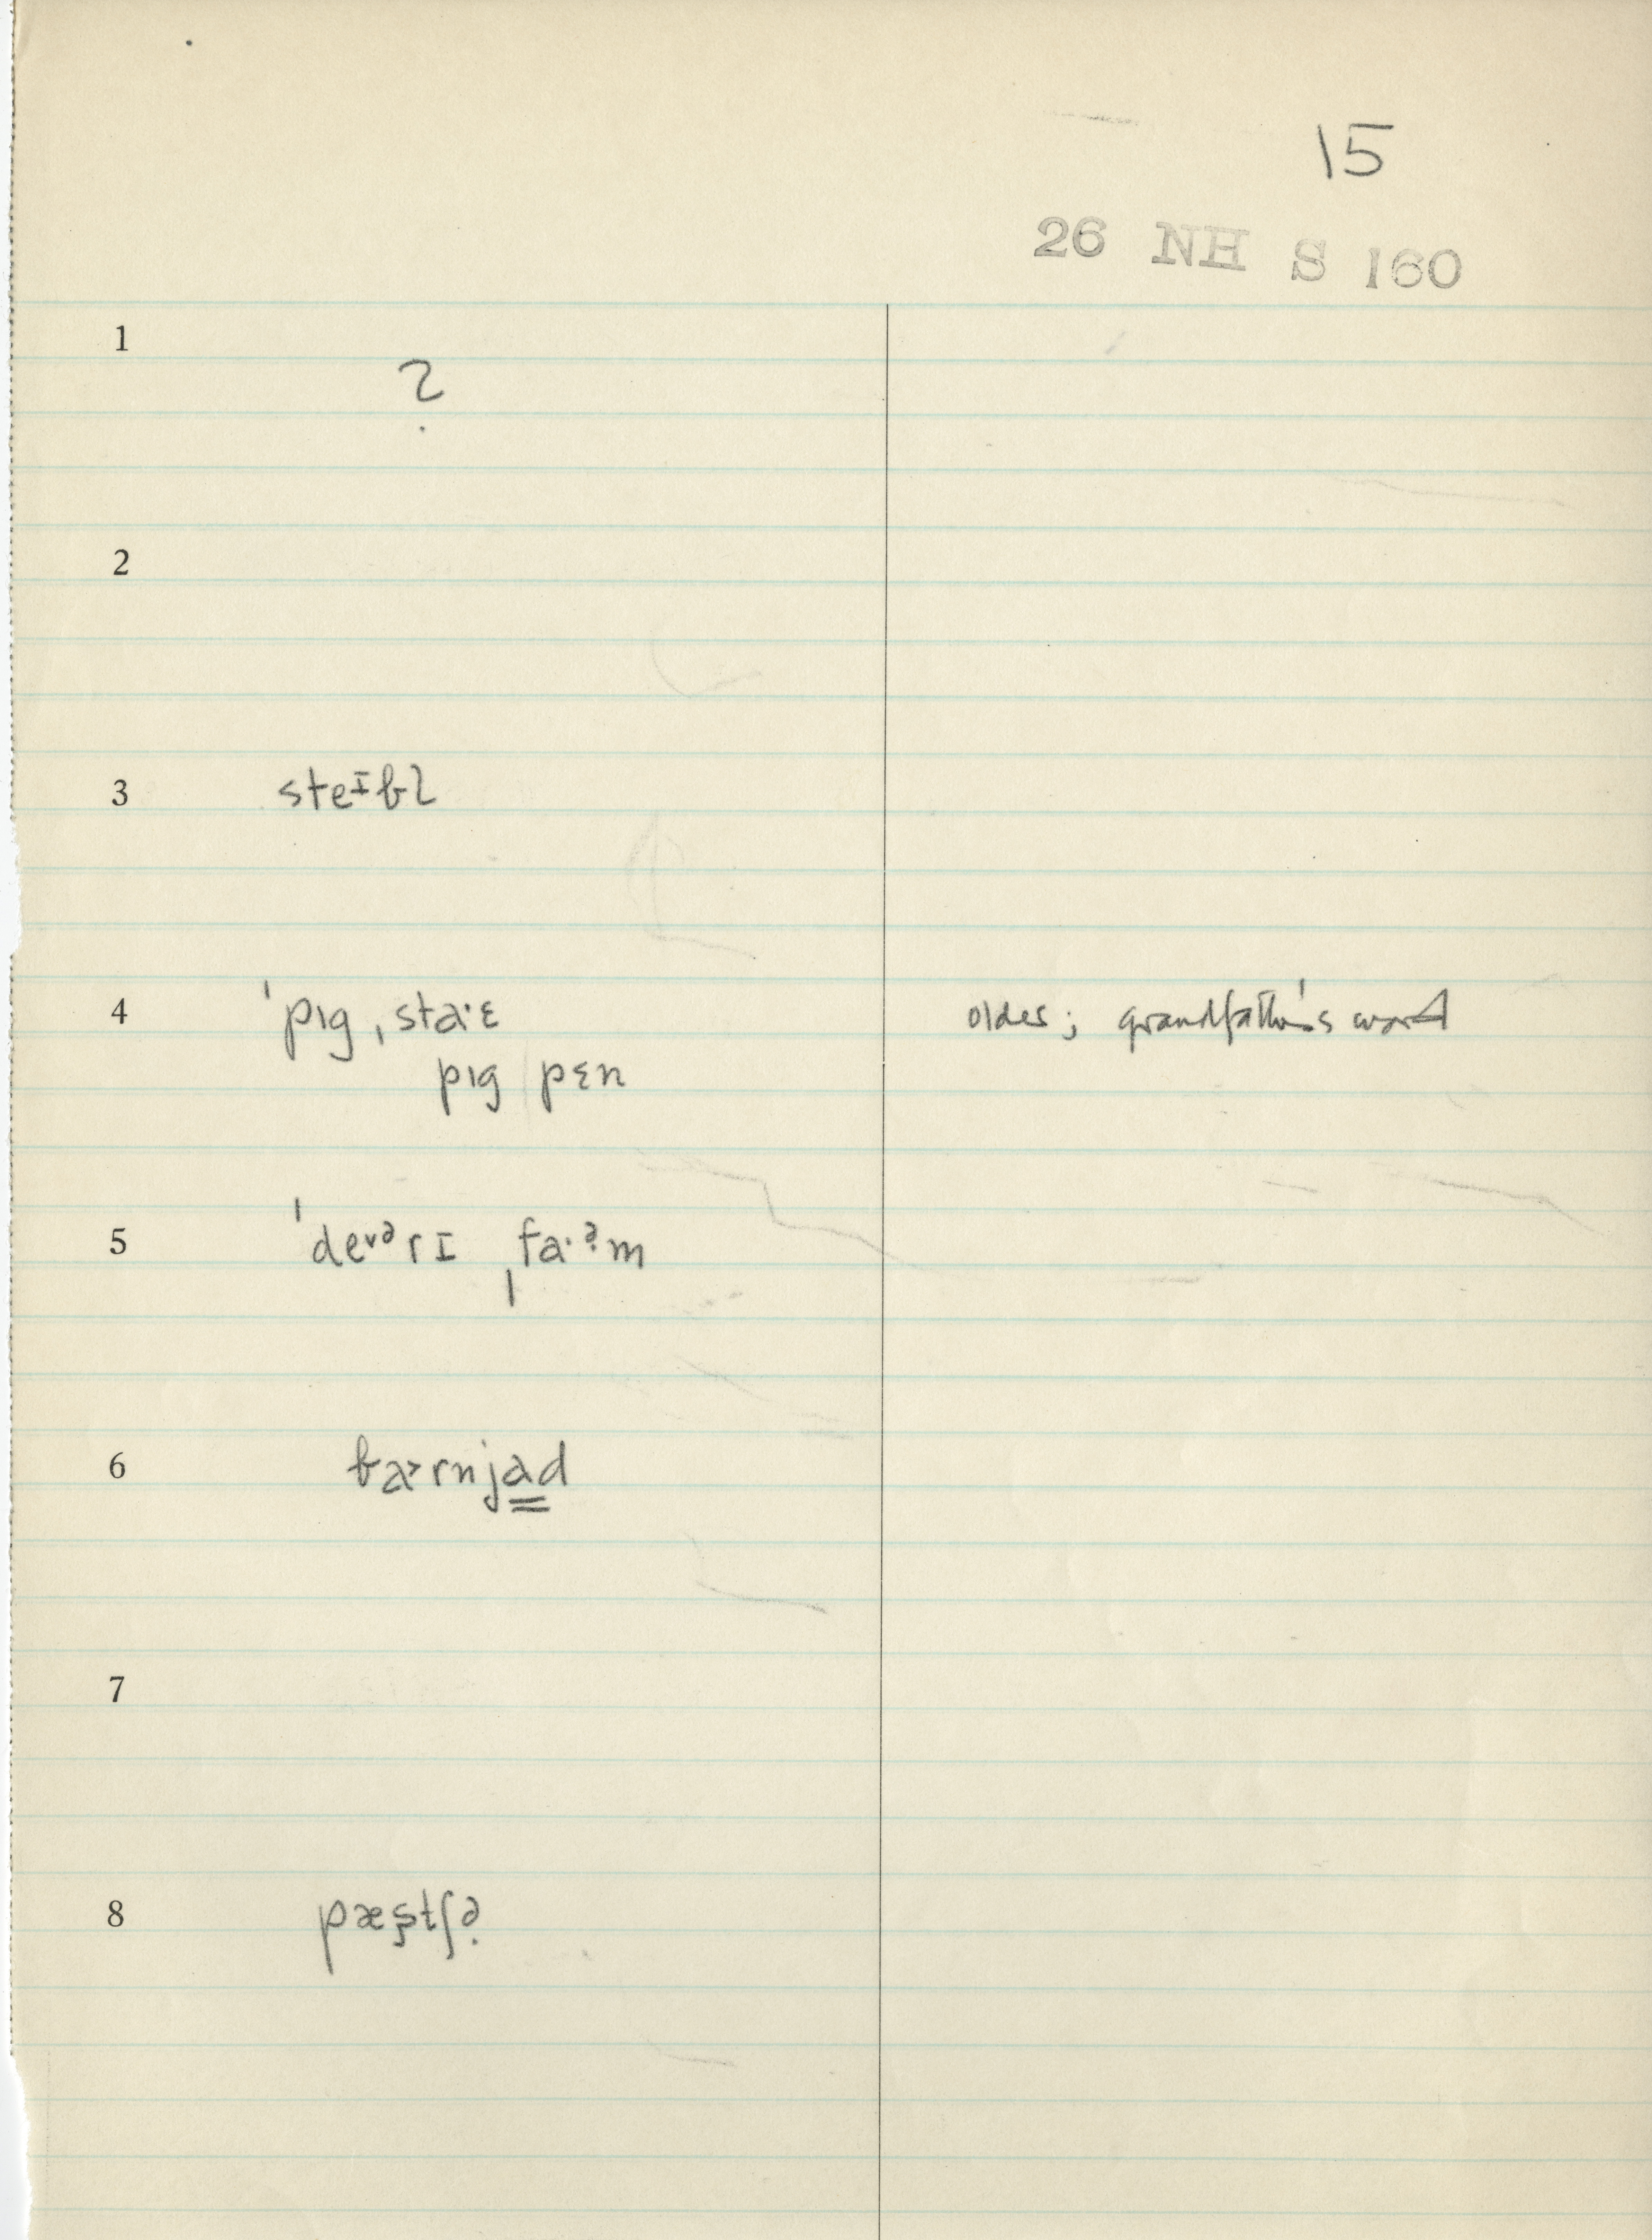 15
26 NH S 160
1
?
2
3 steᶦbl
4 ˈpɪg ˌstaˑɛ older; grandfather's word
pɪg pɛn
5 ˈdeᵛᵊrɪ ˌfaˑᵊ̣m
6 ba˃rnja̳d
7
8 pæʂtʃə̣